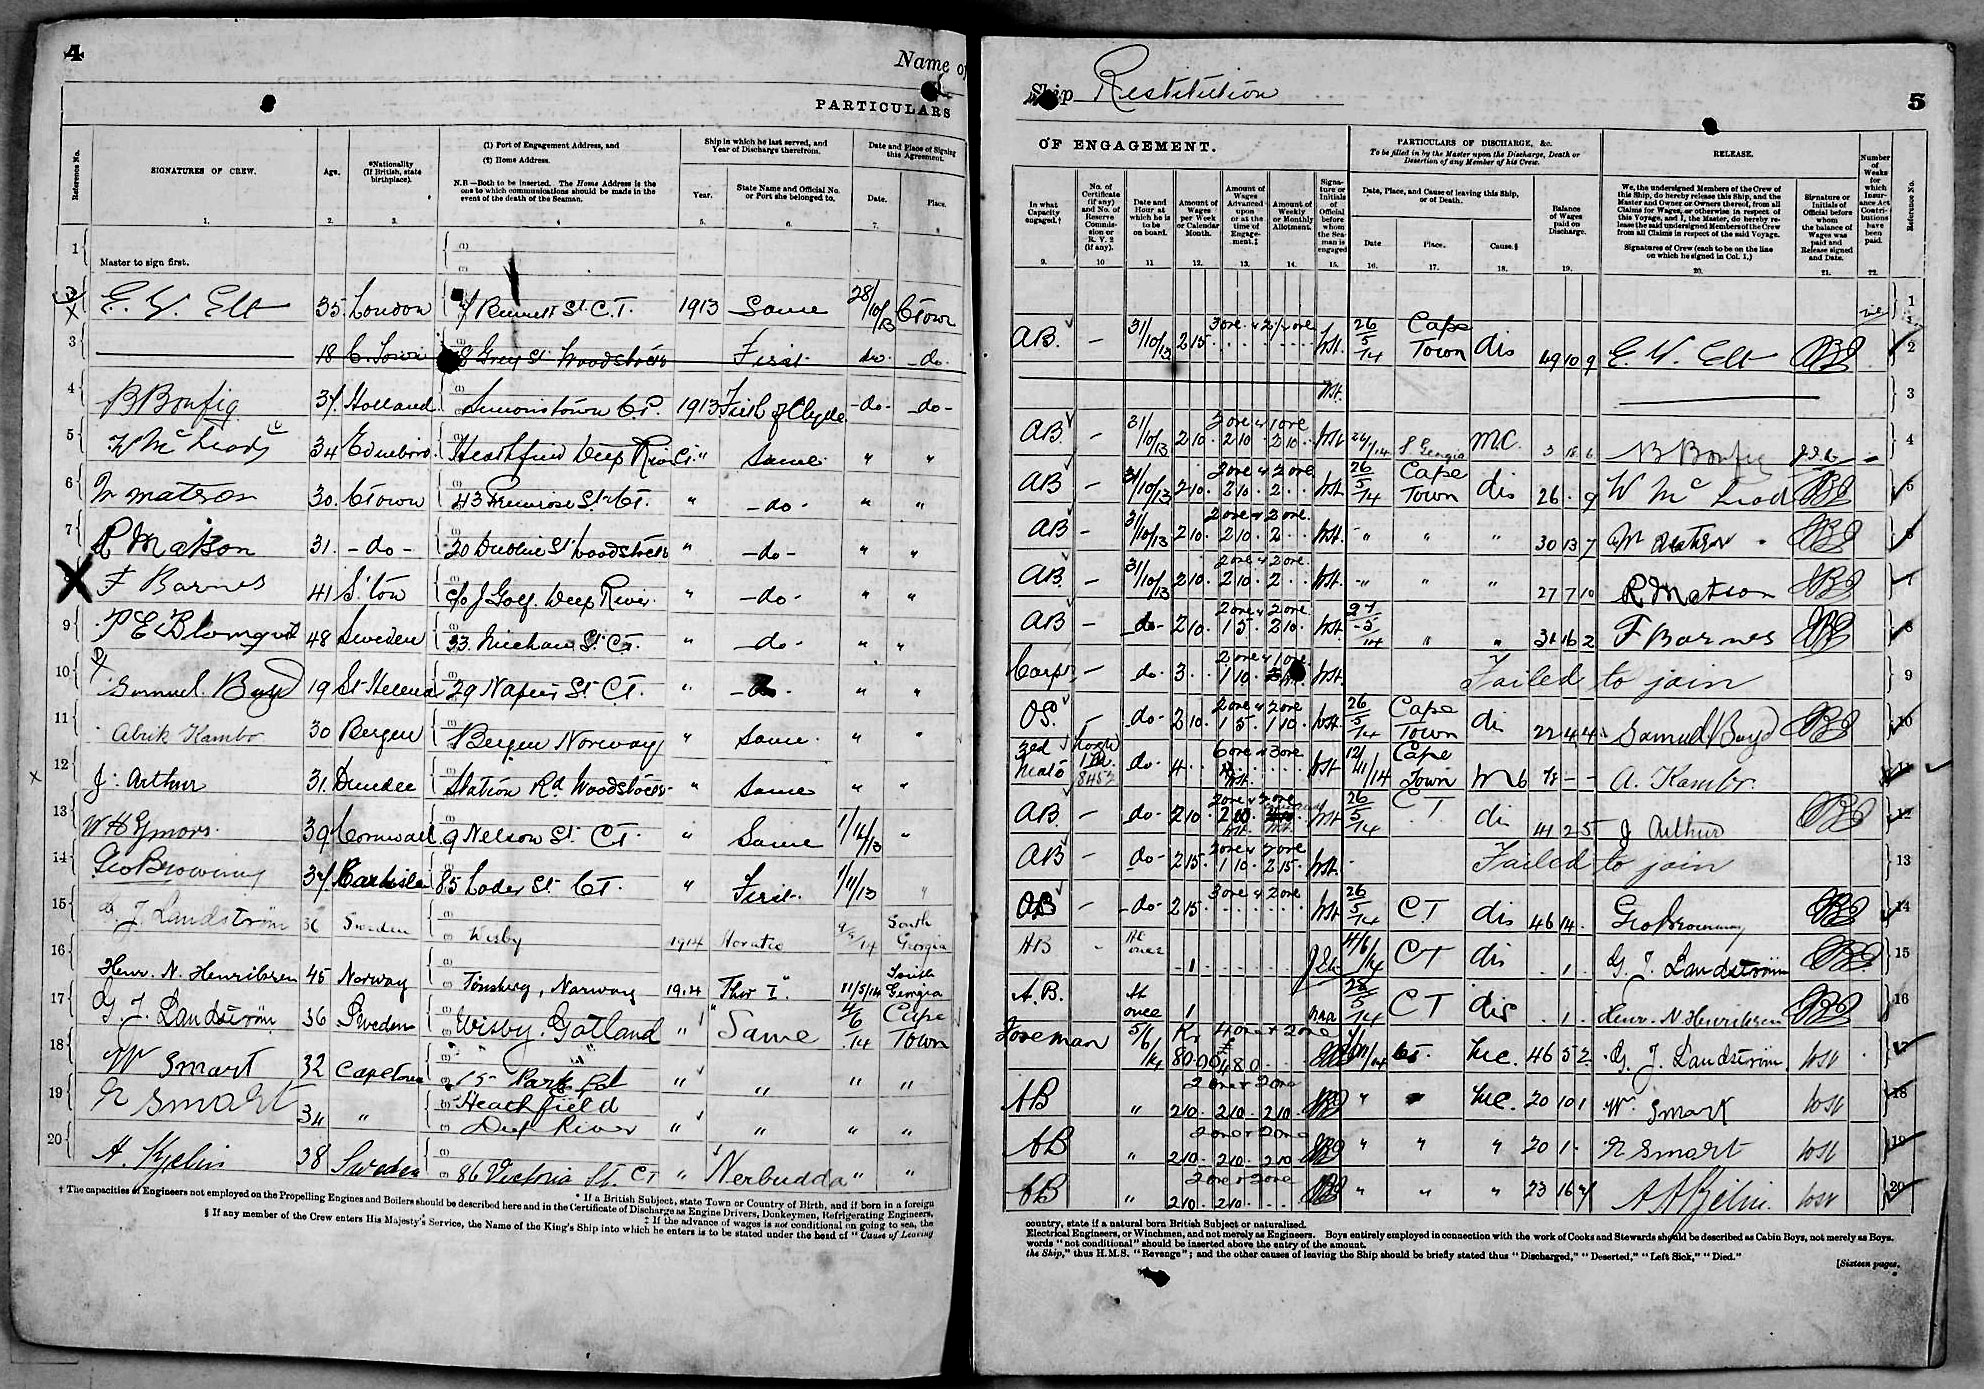 4
Name of
PARTICULARS
Reference No.
SIGNATURES OF CREW.
1.
Age.
2.
*Nationality (If British, state birthplace).
3.
(1) Port of Engagement Address, and
(2) Home Address.
N.B—Both to be inserted. The Home Address is the one to which communications should be made in the event of the death of the Seaman.
4
Ship in which he last served, and Year of Discharge therefrom.
Year.
5.
State Name and Official No. or Port she belonged to.
6.
Date and Place of Signing this Agreement.
Date.
7.
Place.
8
1 Master to sign first.
E. W. Elt 35 London 4 Bennett St. C.T. 1913 Same 28/10/13 CTown
3 18 C. Town 8 Grey St Woodstock First do. do.
4 B Bonfig 34 Holland Simonstown C.P. 1913 Firth of Clyde -do- -do-
5 W McLeod 34 Edinboro. Heathfield Deep River C.T. " Same " "
6 M Matson 30. CTown 43 Primrose St. C.T. " -do- " "
7 R Matson 31. -do- 20 Dublin St Woodstock " -do- " "
F Barnes 41 S. Ton c/o J Golf. Deep River. " -do- " "
9 P E Blomqvist 48 Sweden 33. St. C.T. " do- " "
10 Samuel Boyd 19 St Helena 29 Napier St. C.T. " -do- " "
11 Alrik Kambo 30 Bergen Bergen Norway " Same. " "
12 J. Arthur 31. Dundee Station Rd Woodstock " Same " "
13 W H 39 Cornwall 9 Nelson St. C.T. " Same 1/11/13 "
14 Geo Browning 34 Carlisle 85 Loder St. C.T. " First. 1/11/13 "
15 G. J. Landström 36 Sweden Wisby 1914 Horatio South Georgia
16 Henr. N. Henriksen 45 Norway Tönsberg, Norway 1914 Thor I. 11/5/14 South Georgia
17 G. J. Landström 36 Sweden Wisby. Gotland " Same 4/6 .14 Cape Town
18 W Smart 32 Capetown 15 Park Rd " " " "
19 Smart 34 " Heathfield Deep River " " " "
20 A. Kjelin 38 Sweden 86 Victoria St. CT " Nerbudda " "
* If a British Subject, state Town or Country of Birth, and if born in a foreign
† The capacities of Engineers not employed on the Propelling Engines and Boilers should be described here and in the Certificate of Discharge as Engine Drivers, Donkeymen, Refrigerating Engineers,
‡ If the advance of wages is not conditional on going to sea, the
§ If any member of the Crew enters His Majesty's Service, the Name of the King's Ship into which he enters is to be stated under the head of "Cause of Leaving
Ship Restitution
5
OF ENGAGEMENT.
PARTICULARS OF DISCHARGE, &c.
To be filled in by the Master upon the Discharge, Death or Desertion of any Member of his Crew.
RELEASE.
In what Capacity engaged.†
9.
No. of Certificate (if any) and No. of Reserve Commission or R. V. 2 (if any).
10
Date and Hour at which he is to be on board.
11
Amount of Wages per Week or Calendar Month.
12.
Amount of Wages Advanced upon or at the time of Engagement.‡
13.
Amount of Weekly or Monthly Allotment.
14.
Signature or Initials of Official before whom the Seaman is engaged
15.
Date, Place, and Cause of leaving this Ship, or of Death.
Date
16.
Place.
17.
Cause.§
18.
Balance of Wages paid on Discharge.
19.
We, the undersigned Members of the Crew of this Ship, do hereby release this Ship, and the Master and Owner or Owners thereof, from all Claims for Wages, or otherwise in respect of this Voyage, and I, the Master, do hereby release the said undersigned Members of the Crew from all Claims in respect of the said Voyage.
Signatures of Crew (each to be on the line on which he signed in Col. 1.)
20.
Signature or Initials of Official before whom the balance of Wages was paid and Release signed and Date.
21.
Number of Weeks for which Insurance Act Contributions have been paid.
22.
Reference No.
1
AB. – 31/10/13 2 15 26/5/14 Cape Town dis 49 10 9 E. W. Elt 2
3
AB. – 31/10/13 2 10 2 10 2 10 S Georgia M.C. B Bonfig 4
AB – 31/10/13 2 10. 2 10. 2 26/5/14 Cape Town dis 26 . 9 W McLeod 5
AB – 31/10/13 2 10. 2 10. 2 " " " 30 13 7 M Matson 6
AB. – 31/10/13 2 10. 2 10. 2 " " " 27 7 10 R Matson 7
AB – do- 2 10. 1 5. 2 10. 27/5/14 " " 31 16 2 F Barnes 8
Carp. – do. 3. 1 10. Failed to join 9
OS. – do- 2 10. 1 5. 1 10. 26/5/14 Cape Town di 22 4 4 Samuel Boyd 10
2nd Mate do- 4. 12/11/14 Cape Town A. Kambo. 11
AB. – do- 2 10. 26/5/14 C T di 41 2 5 J Arthur 12
AB – do- 2 15. 1 10. 2 15. Failed to join 13
AB – do- 2 15. 26/5/14 C.T dis 46 14. Geo Browning 14
AB - At once 1 4/6/14 C T dis . 1 . G. J. Landström 15
A.B. At once 1 C T dis . 1 . Henr. N Henriksen 16
Foreman 5/6/14 Kr 80.00 46 5 2 G. J. Landström. 17
AB " 2 10. 2 10. 2 10 " 20 10 1 W. Smart 18
AB " 2 10. 2 10. 2 10 " " " 20 1 - Smart 19
AB " 2 10. 2 10. " " " 23 16 A Kjelin. 20
country, state if a natural born British Subject or naturalized.
Electrical Engineers, or Winchmen, and not merely as Engineers. Boys entirely employed in connection with the work of Cooks and Stewards should be described as Cabin Boys, not merely as Boys.
words "not conditional" should be inserted above the entry of the amount.
the Ship," thus H.M.S. "Revenge"; and the other causes of leaving the Ship should be briefly stated thus "Discharged," "Deserted," "Left Sick," "Died."
[Sixteen pages.